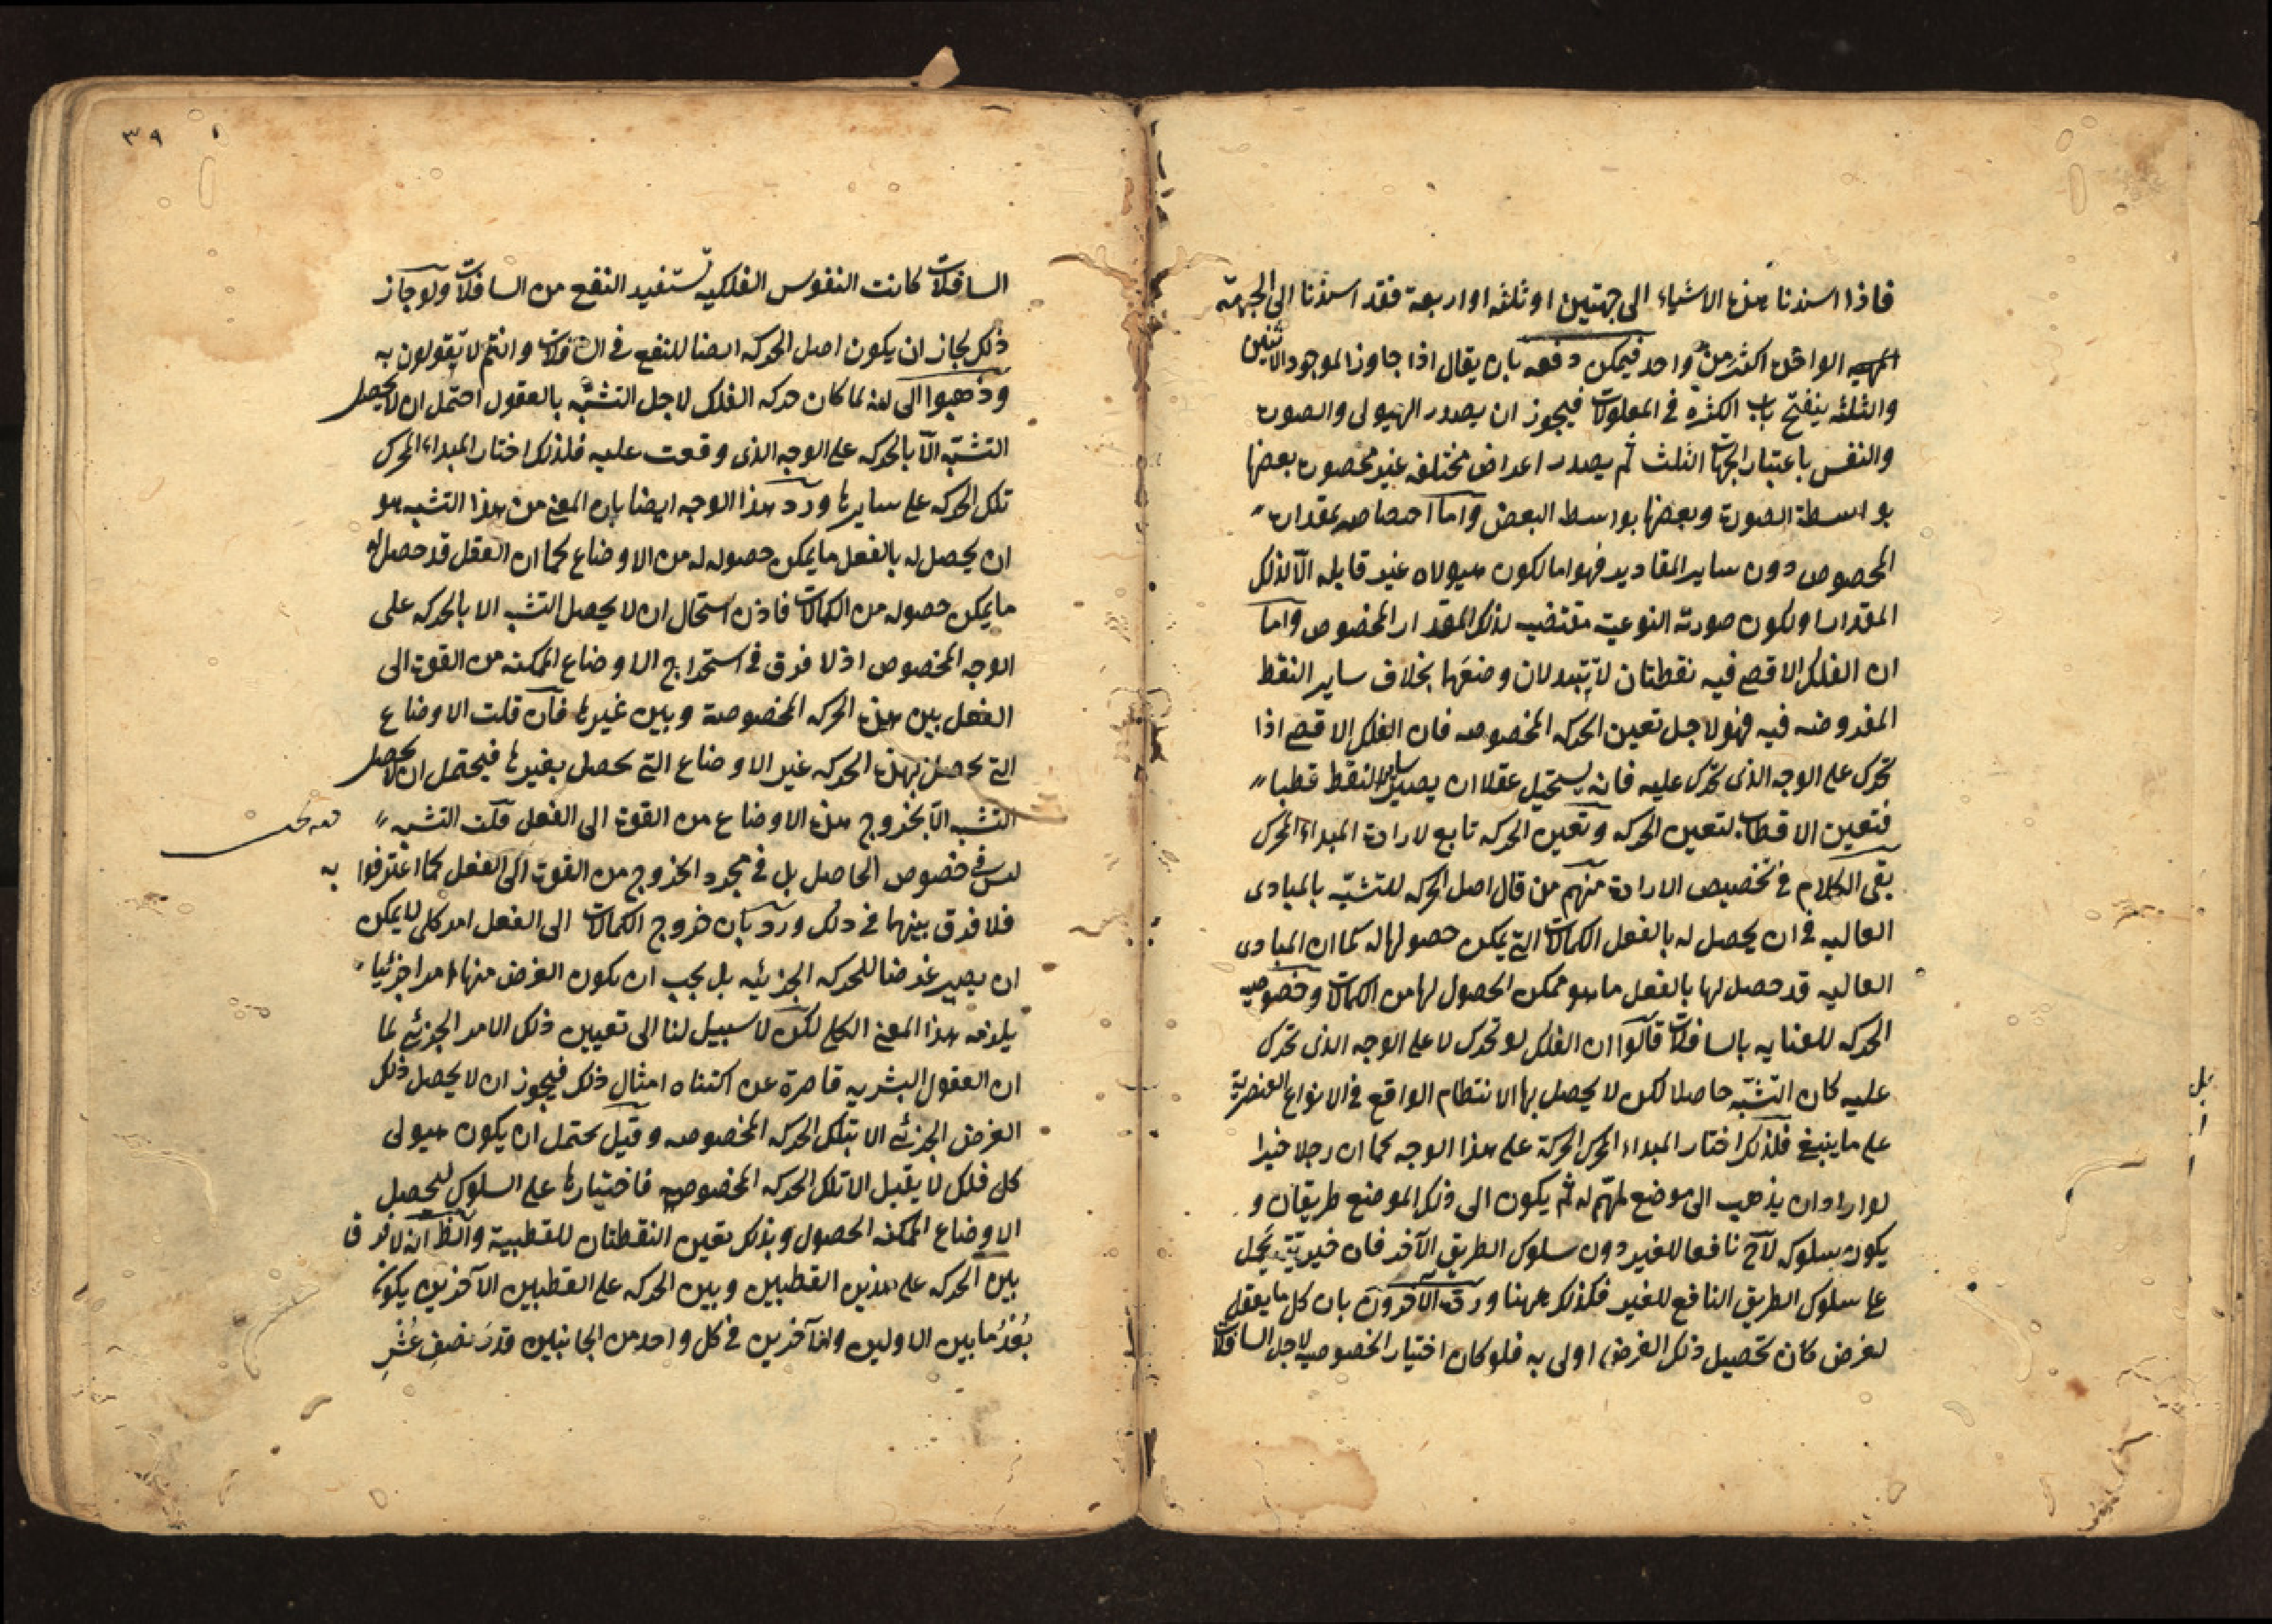 فاذا اسندنا هذه الاشياء الى جهتين او ثلثه او اربعة فقد اسندنا الى الجهة
الواحدة اكثر من واحد فيمكن دفعه بان يقال اذا جاوز الموجود الاثنين
والثلثه ينفتح باب الكثرة في المعلولات فيجوز ان يصدر الهيولى والصورة
والنفس باعتبار الجهات الثلث ثم يصدر اعراض مختلفه غير محصورة بعضها
بواسطة الصورة وبعضها بواسط البعض واما اختصاصه بمقداره
المخصوص دون ساير المقادير فهو اما لكون هيولاه غير قابله الّا لذلك
المقدار او لكون صورته النوعية مقتضيه لذلك المقدار المخصوص واما
ان الفلك الاقصى فيه نقطتان لا تتبدلان وضعهما بخلاف ساير النقط
المفروضه فيه فهو لاجل تعين الحركه المخصوصه فان الفلك الاقصى اذا
تحرك على الوجه الذى تحرك عليه فانه يستحيل عقلا ان يصير ساير النقط قطبا
فتعين الاقطاب لتعين الحركه وتعين الحركه تابع لارادة المبداء المحرك
بقى الكلام في تخصيص الارادة منهم من قال اصل الحركه للتشبّه بالمبادى
العاليه في ان يحصل له بالفعل الكمالات التى يمكن حصولها له كما ان المبادى
العاليه قد حصل لها بالفعل ما هو ممكن الحصول لها من الكمالات وخصوصيه
الحركه للعنايه بالسافلات قالوا ان الفلك لو تحرك لا على الوجه الذى تحرك
عليه كان التشبّه حاصلا لكن لا يحصل بها الانتظام الواقع في الانواع العنصرية
على ما ينبغى فلذلك اختار المبداء المحرك الحركة على هذا الوجه كما ان رجلا خيرا
لو اراد ان يذهب الى موضع لمهمّ له ثم يكون الى ذلك الموضع طريقان و
يكون سلوكه لأحد نافعا للغير دون سلوك الطريق الآخر فان خيريّته تحمل
على سلوك الطريق النافع للغير فكذلك ههنا وردّه الآخرون بان كل ما يفعل
لغرض كان تحصيل ذلك الغرض اولى به فلو كان اختيار الخصوصيه لاجل السافلات
٣٩
السافلات كانت النفوس الفلكيه تستفيد النفع من السافلات ولو جاز
ذلك لجاز ان يكون اصل الحركه ايضا للنفع في السافلات وانتم لا تقولون به
وذهبوا الى انه لما كان حركه الفلك لاجل التشبّه بالعقول احتمل ان لا يحصل
التشبّه الّا بالحركه على الوجه الذى وقعت عليه فلذلك اختار المبداء المحرك
تلك الحركه على سايرها وردّ هذا الوجه ايضا بان المعنى من هذا التشبه هو
ان يحصل له بالفعل ما يمكن حصوله له من الاوضاع كما ان العقل قد حصل له
ما يمكن حصوله من الكمالات فاذن استحال ان لا يحصل التشبه الا بالحركه على
الوجه المخصوص اذ لا فرق في استخراج الاوضاع الممكنه من القوة الى
الفعل بين هذه الحركه المخصوصة وبين غيرها فان قلت الاوضاع
التى تحصل بهذه الحركه غير الاوضاع التى تحصل بغيرها فيحتمل ان لا يحصل
التشبه الّا بخروج هذه الاوضاع من القوة الى الفعل قلت التشبه
ليس في خصوص الحاصل بل في مجرد الخروج من القوة الى الفعل كما اعترفوا به
فلا فرق بينهما في ذلك وردّ بان خروج الكمالات الى الفعل امر كلى لا يمكن
ان يصير غرضا للحركه الجزئيه بل يجب ان يكون الغرض منها امرا جزئيا
يلزمه هذا المعنى الكلى لكن لا سبيل لنا الى تعيين ذلك الامر الجزئى لما
ان العقول البشريه قاصرة عن اكتناه امثال ذلك فيجوز ان لا يحصل ذلك
الغرض الجزئى الا بتلك الحركه المخصوصه وقيل يحتمل ان يكون هيولى
كل فلك لا يقبل الا تلك الحركه المخصوصه فاختيارها على السلوك ليحصل
الاوضاع الممكنه الحصول وبذلك تعين النقطتان للقطبية والظ انه لا فرق
بين الحركه على هذين القطبين وبين الحركه على القطبين الآخرين يكون
بُعْدُ ما بين الاولين والآخرين في كل واحد من الجانبين قدرَ نصفِ عُشْرِ